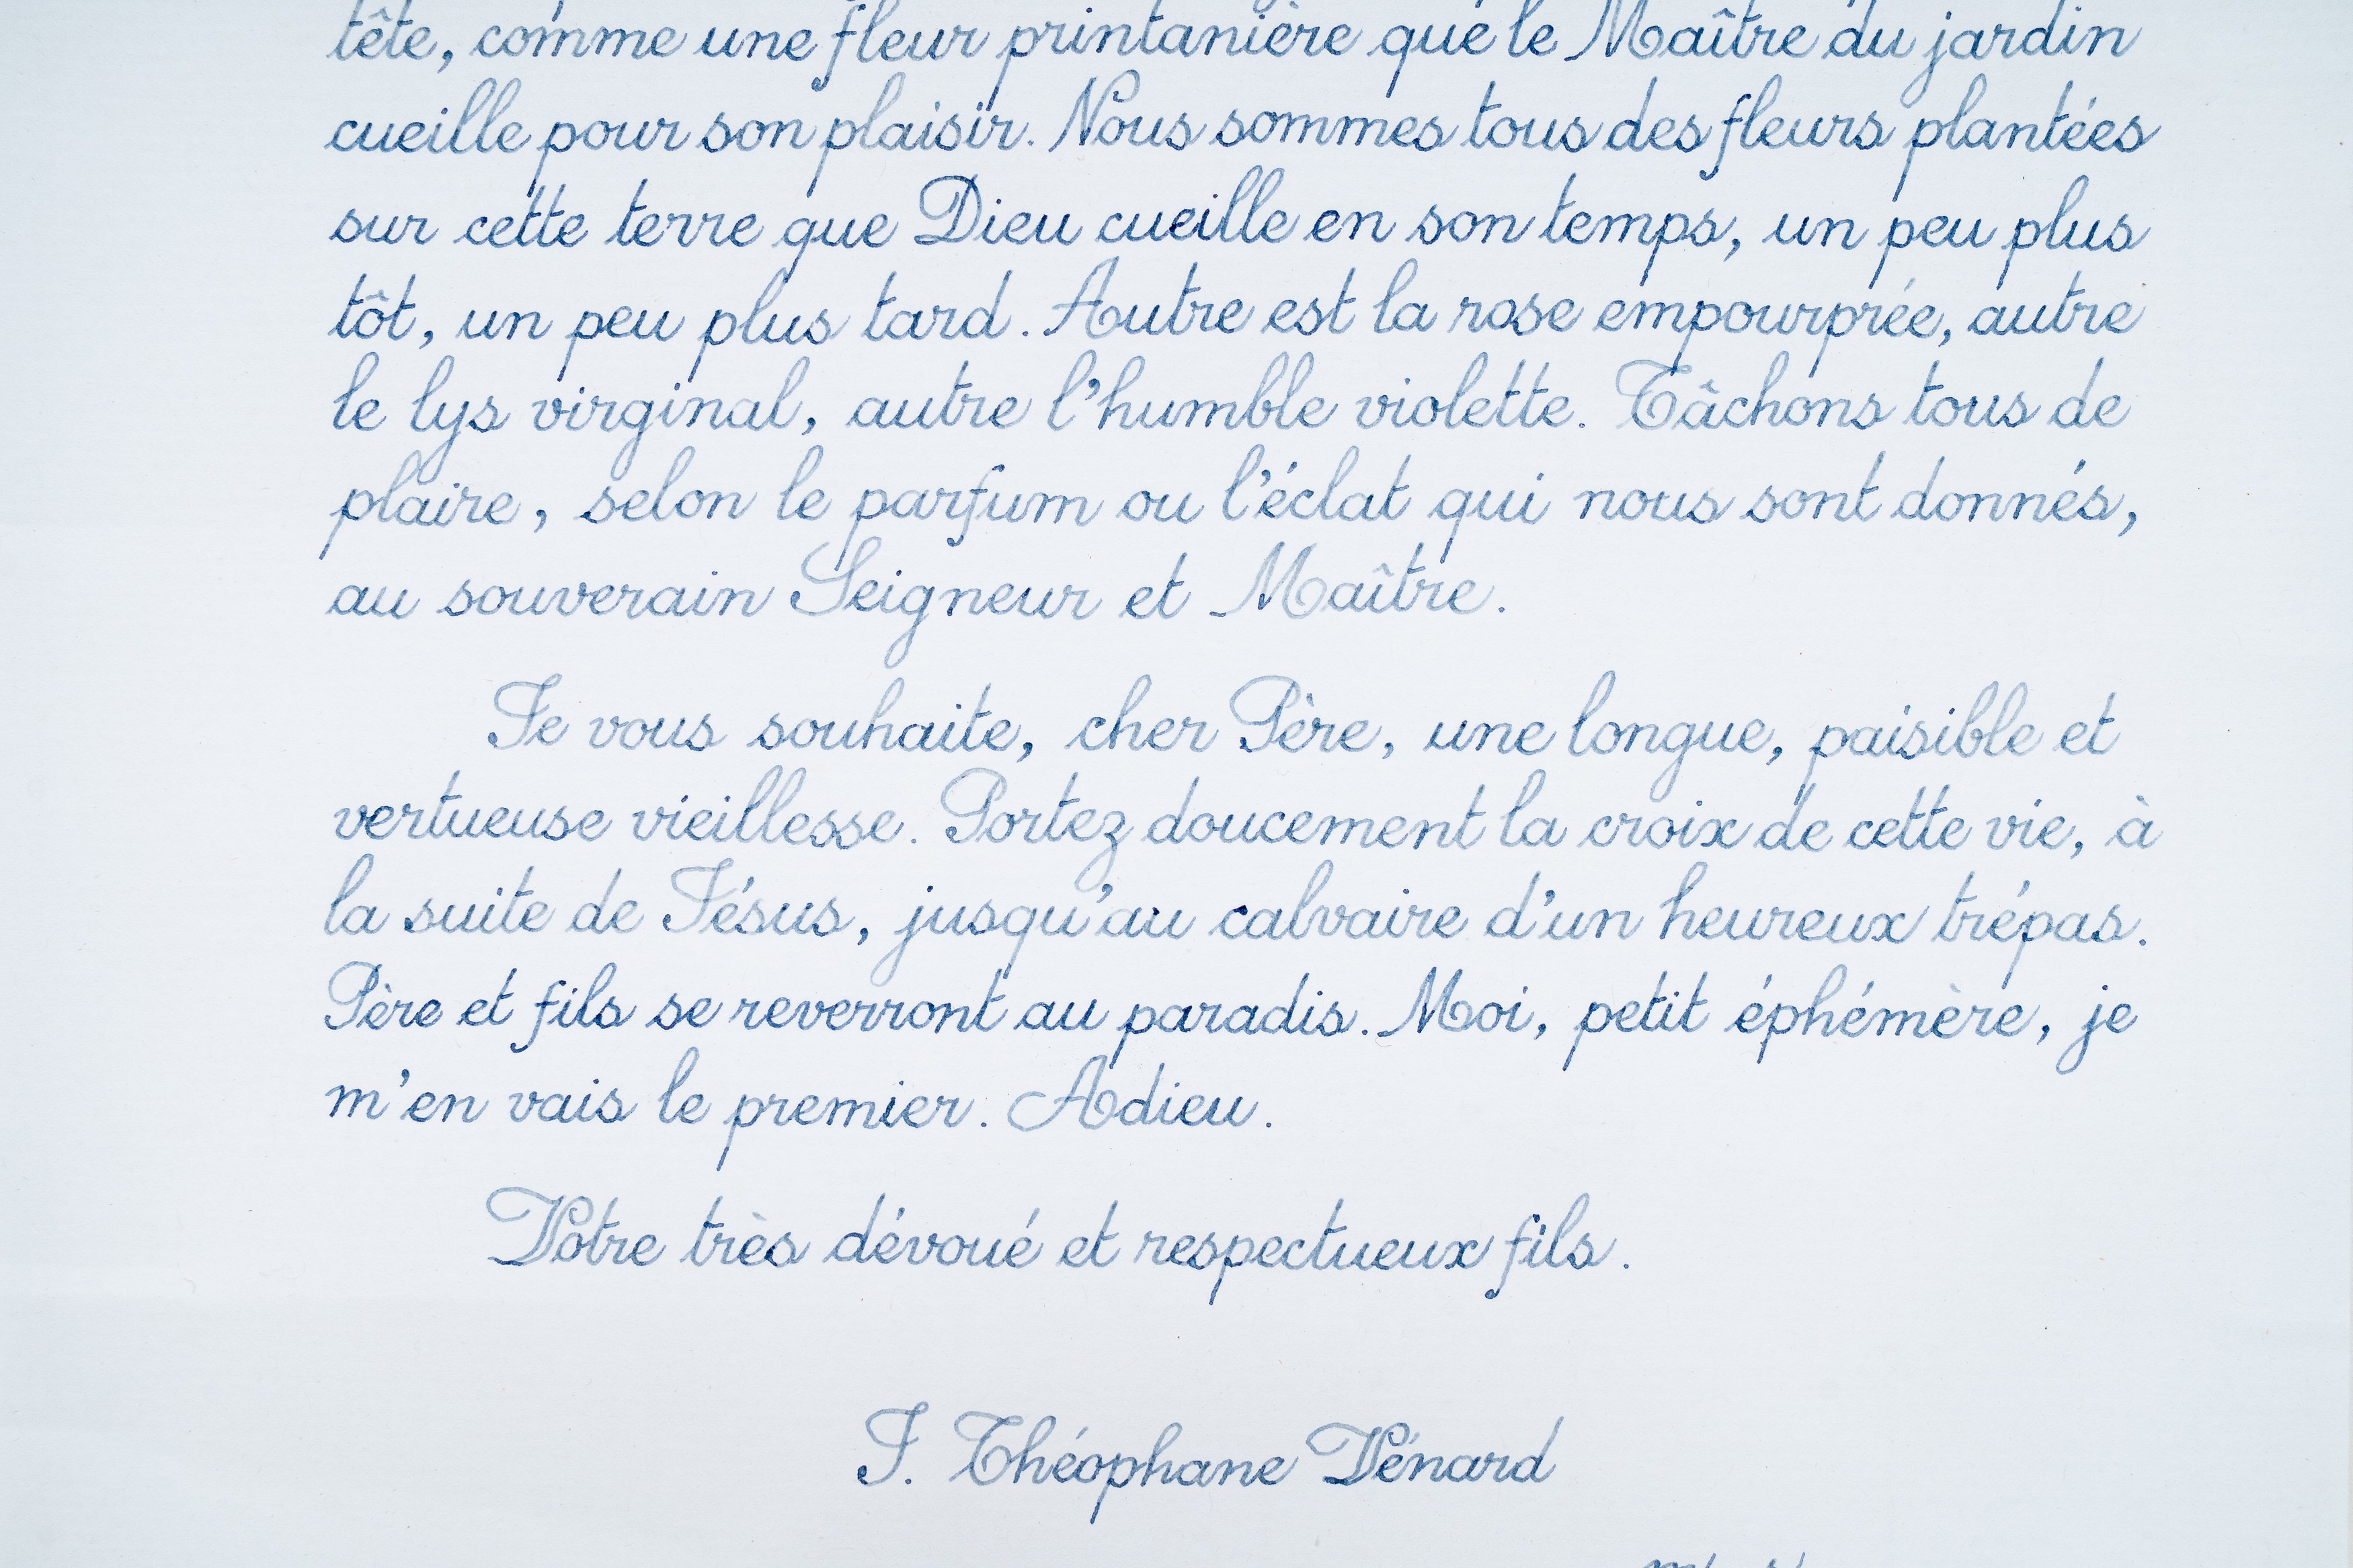 tête, comme une fleur printanière que le Maître du jardin
cueille pour son plaisir. Nous sommes tous des fleurs plantées
sur cette terre que Dieu cueille en son temps, un peu plus
tôt, un peu plus tard. Autre est la rose empourprée, autre
le lys virginal, autre l'humble violette. Tâchons tous de
plaire, selon le parfum ou l'éclat qui nous sont donnés,
au souverain Seigneur et Maître.
Je vous souhaite, cher Père, une longue, paisible et
vertueuse vieillesse. Portez doucement la croix de cette vie, à
la suite de Jésus, jusqu'au calvaire d'un heureux trépas.
Père et fils se reverront au paradis. Moi, petit éphémère, je
m'en vais le premier. Adieu.
Votre très dévoué et respectueux fils.
J. Théophane Vénard